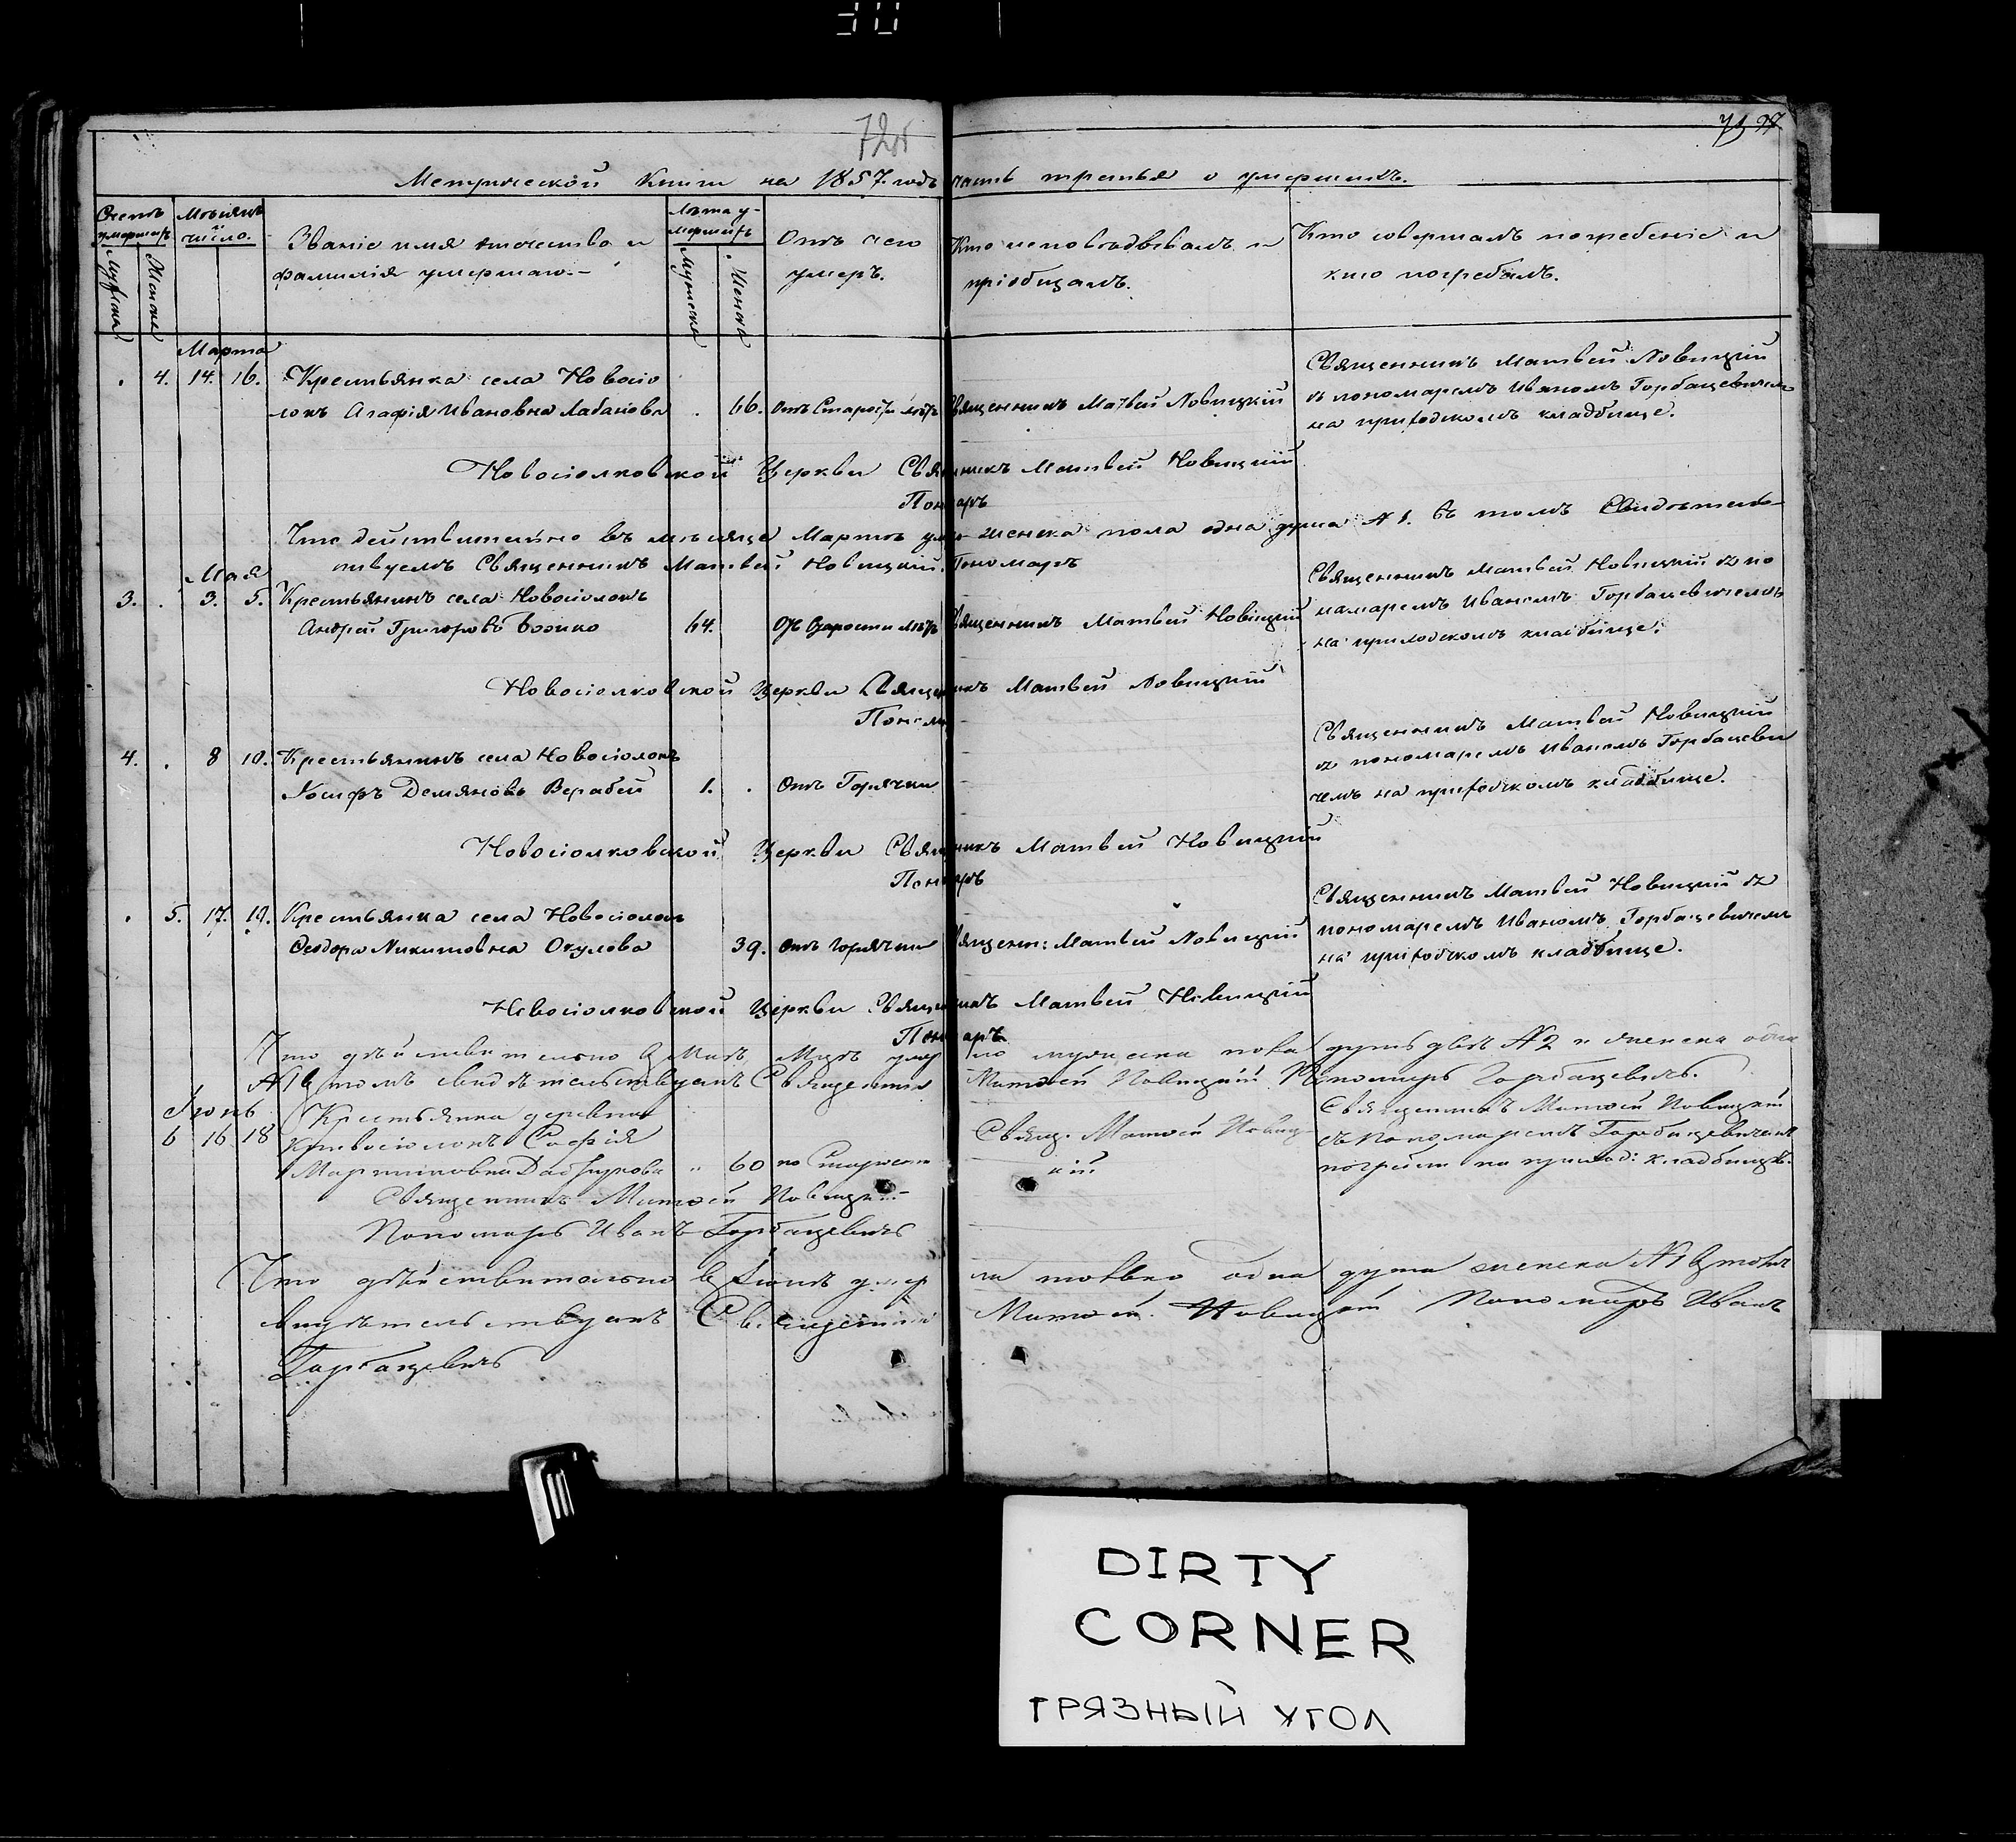 30
72об
73
Метрической книги на 1857. годъ часть третья о умершихъ.
Счетъ умершихъ
Мужска
Женска
Мѣсяцъ и число.
Званіе имя отчество и
фамилія умершаго.
Лѣта умершихъ
Мужска
Женска
Отъ чего
умеръ.
Кто исповѣдывалъ и
пріобщалъ.
Кто совершалъ погребеніе и
кто погребалъ.
Марта
4. 14. 16. Крестьянка села Новосіо
локъ Агафія Ивановна Лабанова . 66. Отъ Старости лѣтъ Священникъ Матвей Новицкій
Священникъ Матвей Новицкій
съ пономаремъ Иваномъ Горбацевичемъ
на приходскомъ кладбище.
Новосіолковской Церкви Священникъ Матвей Новицкій
Пономарь
Что действительно въ мѣсяце Мартѣ умер женска пола одна душа № 1. въ томъ Свидѣтель
ствуемъ Священникъ Матвей Новицкій. Пономарь
Мая
3. . 3. 5. Крестьянинъ села Новосіолокъ
Андрей Григоровъ Бойко 64. Отъ Старости лѣтъ Священникъ Матвей Новицкій
Священникъ Матвей Новицкій съ по
намаремъ Иваномъ Горбацевичемъ
на приходскомъ кладбище.
Новосіолковской Церкви Священникъ Матвей Новицкій
Пономарь
4. . 8 10. Крестьянинъ села Новосіолокъ
Іосифъ Демяновъ Верабей 1. . Отъ Горячки
Священникъ Матвей Новицкій
съ пономаремъ Иваномъ Горбацеви
чемъ на приходскомъ кладбище.
Новосіолковской Церкви Священникъ Матвей Новицкій
Пономарь
. 5. 17. 19. Крестьянка села Новосіолокъ
Феодора Никитовна Окулова 39. Отъ горячки Священ: Матвей Новицкій
Священникъ Матвей Новицкій съ
пономаремъ Иваномъ Горбацевичемъ
на приходскомъ кладбище.
Новосіолковской Церкви Священникъ Матвей Новицкій
Пономарь
Что дѣйствительно в Маѣ Мцѣ умерло мужеска пола душъ двѣ № 2 и женска одна
№ 1 в томъ свидѣтельствуемъ Священникъ Матвей Новицкій Пономарь Горбацевичъ.
Іюнь
6 16 18 Крестьянка деревни
Новосіолокъ Софія
Мартиновна " 60 по Старости
Свящ. Матвей Новиц
кій
Священникъ Матвей Новицкій
съ Пономаремъ Горбацевичемъ
погребли на приход: кладбищѣ.
Священникъ Матвей Новицкій
Пономарь Иванъ Горбацевичъ
Что дѣйствительно в Іюнѣ умерла только одна душа женска № 1 в томъ
свидѣтельствуемъ Священникъ Матвей Новицкій Пономарь Иванъ
Горбацевичъ
DIRTY
CORNER
ГРЯЗНЫЙ УГОЛ